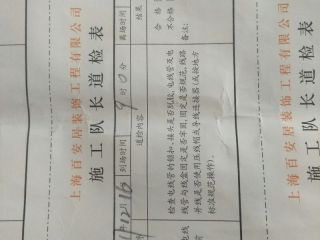 上海百安居装饰工程有限公司
施工队长道检表
到场时间
9时0分
离场时间
道检内容
结果
检查电线管的锁扣、接头是否脱胶,电线管及电
线管与线盒固定是否牢固,固定是否规范,线路
并线是否使用压线帽或导线连接器(或按地方
标准规范操作)。
合格
不合格
备注:
上海百安居装饰工程有限公司
施工队长道检表